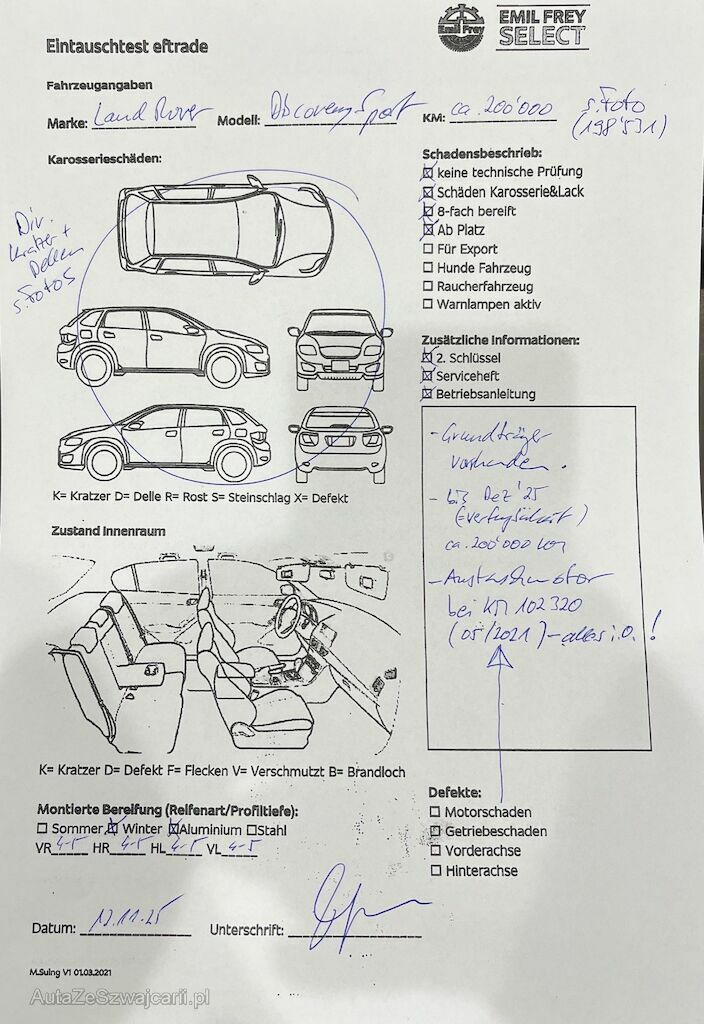 Eintauschtest eftrade
Emil Frey
EMIL FREY
SELECT
Fahrzeugangaben
Marke: Land Rover Modell: Discovery Sport KM: ca. 200'000 s. Foto
(198'531)
Karosserieschäden:
Div.
Kratzer +
Dellen
s. Fotos
K= Kratzer D= Delle R= Rost S= Steinschlag X= Defekt
Schadensbeschrieb:
☒ keine technische Prüfung
☒ Schäden Karosserie&Lack
☒ 8-fach bereift
☒ Ab Platz
☐ Für Export
☐ Hunde Fahrzeug
☐ Raucherfahrzeug
☐ Warnlampen aktiv
Zusätzliche Informationen:
☒ 2. Schlüssel
☒ Serviceheft
☒ Betriebsanleitung
- Grundträger
vorhanden.
- bis Dez'25
(=Verfügbarkeit)
ca. 200'000 km
- Austauschmotor
bei KM 102320
(05/2021) - alles i.O.!
Zustand Innenraum
K= Kratzer D= Defekt F= Flecken V= Verschmutzt B= Brandloch
Montierte Bereifung (Reifenart/Profiltiefe):
☐ Sommer ☒ Winter ☒ Aluminium ☐ Stahl
VR 4-5 HR 4-5 HL 4-5 VL 4-5
Defekte:
☐ Motorschaden
☐ Getriebeschaden
☐ Vorderachse
☐ Hinterachse
Datum: 12.11.25 Unterschrift:
M.Suing V1 01.03.2021
AutaZeSzwajcarii.pl